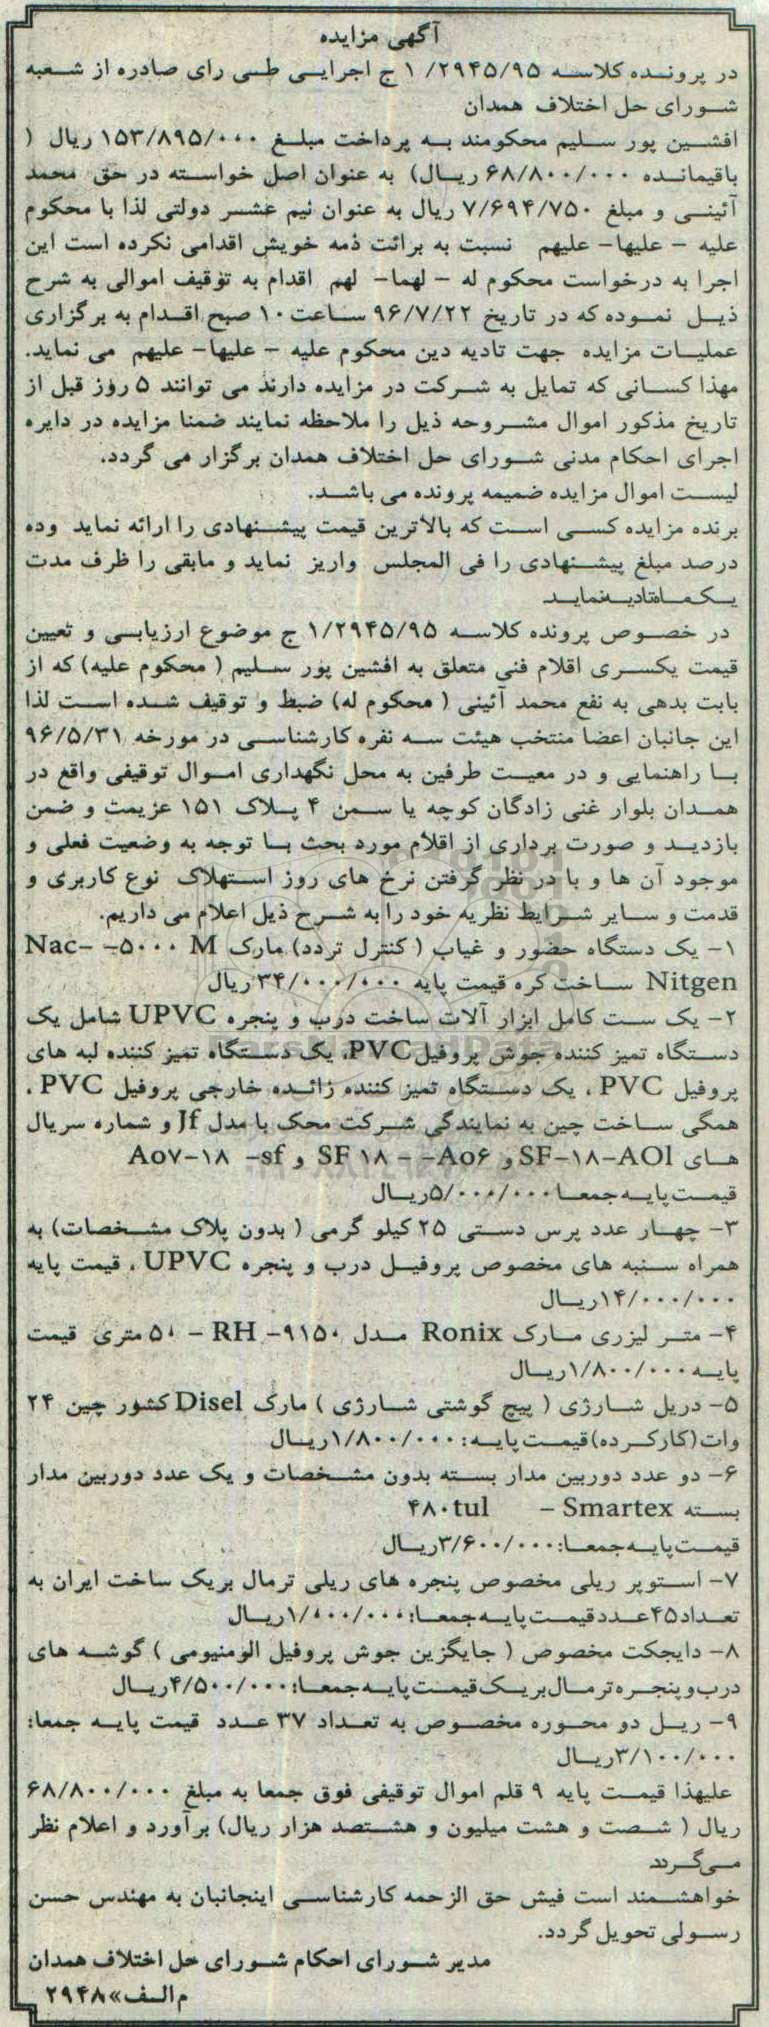 آگهی مزایده
در پرونده کلاسه ۲۹۴۵/۹۵/ ۱ ج اجرایی طی رای صادره از شعبه
شورای حل اختلاف همدان
افشین پور سلیم محکومند به پرداخت مبلغ ۱۵۳/۸۹۵/۰۰۰ ریال (
باقیمانده ۶۸/۸۰۰/۰۰۰ ریال) به عنوان اصل خواسته در حق محمد
آئینی و مبلغ ۷/۶۹۴/۷۵۰ ریال به عنوان نیم عشر دولتی لذا با محکوم
علیه - علیها- علیهم نسبت به برائت ذمه خویش اقدامی نکرده است این
اجرا به درخواست محکوم له - لهما- لهم اقدام به توقیف اموالی به شرح
ذیل نموده که در تاریخ ۹۶/۷/۲۲ ساعت ۱۰ صبح اقدام به برگزاری
عملیات مزایده جهت تادیه دین محکوم علیه - علیها- علیهم می نماید.
مهذا کسانی که تمایل به شرکت در مزایده دارند می توانند ۵ روز قبل از
تاریخ مذکور اموال مشروحه ذیل را ملاحظه نمایند ضمنا مزایده در دایره
اجرای احکام مدنی شورای حل اختلاف همدان برگزار می گردد.
لیست اموال مزایده ضمیمه پرونده می باشد.
برنده مزایده کسی است که بالاترین قیمت پیشنهادی را ارائه نماید وده
درصد مبلغ پیشنهادی را فی المجلس واریز نماید و مابقی را ظرف مدت
یکماه تادیه نماید
در خصوص پرونده کلاسه ۱/۲۹۴۵/۹۵ ج موضوع ارزیابی و تعیین
قیمت یکسری اقلام فنی متعلق به افشین پور سلیم ( محکوم علیه) که از
بابت بدهی به نفع محمد آئینی ( محکوم له) ضبط و توقیف شده است لذا
این جانبان اعضا منتخب هیئت سه نفره کارشناسی در مورخه ۹۶/۵/۳۱
با راهنمایی و در معیت طرفین به محل نگهداری اموال توقیفی واقع در
همدان بلوار غنی زادگان کوچه یا سمن ۴ پلاک ۱۵۱ عزیمت و ضمن
بازدید و صورت برداری از اقلام مورد بحث با توجه به وضعیت فعلی و
موجود آن ها و با در نظر گرفتن نرخ های روز استهلاک نوع کاربری و
قدمت و سایر شرایط نظریه خود را به شرح ذیل اعلام می داریم.
۱- یک دستگاه حضور و غیاب ( کنترل تردد) مارک Nac- -۵۰۰۰ M
Nitgen ساخت کره قیمت پایه ۳۴/۰۰۰/۰۰۰ ریال
۲- یک ست کامل ابزار آلات ساخت درب و پنجره UPVC شامل یک
دستگاه تمیز کننده جوش پروفیل PVC، یک دستگاه تمیز کننده لبه های
پروفیل PVC ، یک دستگاه تمیز کننده زائده خارجی پروفیل PVC ،
همگی ساخت چین به نمایندگی شرکت محک با مدل Jf و شماره سریال
های SF-۱۸-AOl و SF ۱۸ - -Ao۶ و Ao۷-۱۸ -sf
قیمت پایه جمعا ۵/۰۰۰/۰۰۰ریال
۳- چهار عدد پرس دستی ۲۵ کیلو گرمی ( بدون پلاک مشخصات) به
همراه سنبه های مخصوص پروفیل درب و پنجره UPVC ، قیمت پایه
۱۴/۰۰۰/۰۰۰ریال
۴- متر لیزری مارک Ronix مدل RH -۹۱۵۰ - ۵۰ متری قیمت
پایه ۱/۸۰۰/۰۰۰ریال
۵- دریل شارژی ( پیچ گوشتی شارژی ) مارک Disel کشور چین ۲۴
وات(کارکرده)قیمت پایه: ۱/۸۰۰/۰۰۰ریال
۶- دو عدد دوربین مدار بسته بدون مشخصات و یک عدد دوربین مدار
بسته Smartex - ۴۸۰tul
قیمت پایه جمعا: ۳/۶۰۰/۰۰۰ریال
۷- استوپر ریلی مخصوص پنجره های ریلی ترمال بریک ساخت ایران به
تعداد۴۵عدد قیمت پایه جمعا: ۱/۰۰۰/۰۰۰ریال
۸- دایجکت مخصوص ( جایگزین جوش پروفیل الومنیومی ) گوشه های
درب و پنجره ترمال بریک قیمت پایه جمعا: ۴/۵۰۰/۰۰۰ریال
۹- ریل دو محوره مخصوص به تعداد ۳۷ عدد قیمت پایه جمعا:
۳/۱۰۰/۰۰۰ریال
علیهذا قیمت پایه ۹ قلم اموال توقیفی فوق جمعا به مبلغ ۶۸/۸۰۰/۰۰۰
ریال ( شصت و هشت میلیون و هشتصد هزار ریال) برآورد و اعلام نظر
می گردد
خواهشمند است فیش حق الزحمه کارشناسی اینجانبان به مهندس حسن
رسولی تحویل گردد.
مدیر شورای احکام شورای حل اختلاف همدان
م الف» ۲۹۴۸